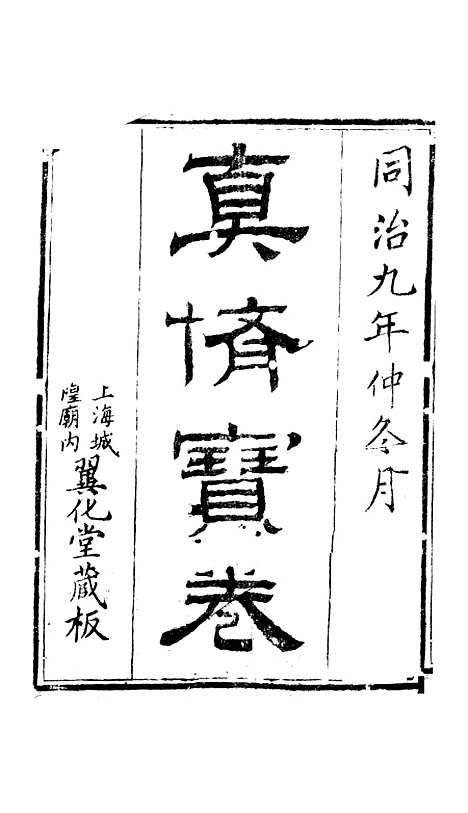 同治九年仲冬月
真脩寶卷
上海城
隍廟內
翼化堂藏板